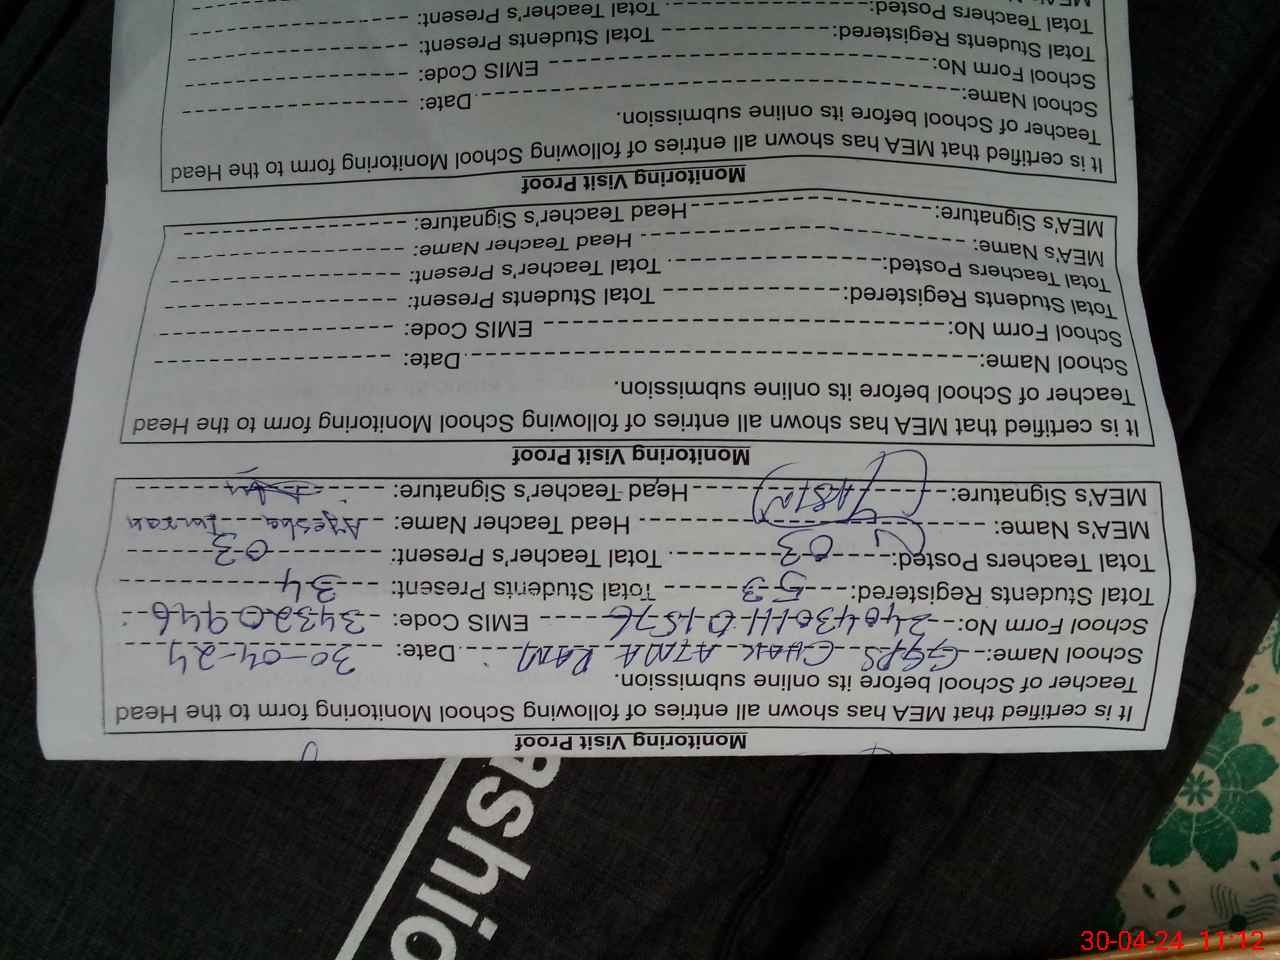 Monitoring Visit Proof
It is certified that MEA has shown all entries of following of School Monitoring form to the Head
Teacher of School before its online submission.
School Name: GGPS CHAK ATMA RAM Date: 30-04-24
School Form No: EMIS Code: 34320946
Total Students Registered: 53 Total Students Present: 34
Total Teachers Posted: 03 Total Teacher's Present: 03
MEA's Name: Head Teacher Name: Ayesha Imran
MEA's Signature: Head Teacher's Signature:
Monitoring Visit Proof
It is certified that MEA has shown all entries of following of School Monitoring form to the Head
Teacher of School before its online submission.
School Name: Date:
School Form No: EMIS Code:
Total Students Registered: Total Students Present:
Total Teachers Posted: Total Teacher's Present:
MEA's Name: Head Teacher Name:
MEA's Signature: Head Teacher's Signature:
Monitoring Visit Proof
It is certified that MEA has shown all entries of following of School Monitoring form to the Head
Teacher of School before its online submission.
School Name: Date:
School Form No: EMIS Code:
Total Students Registered: Total Students Present:
Total Teachers Posted: Total Teacher's Present:
ashio
30-04-24 11:12